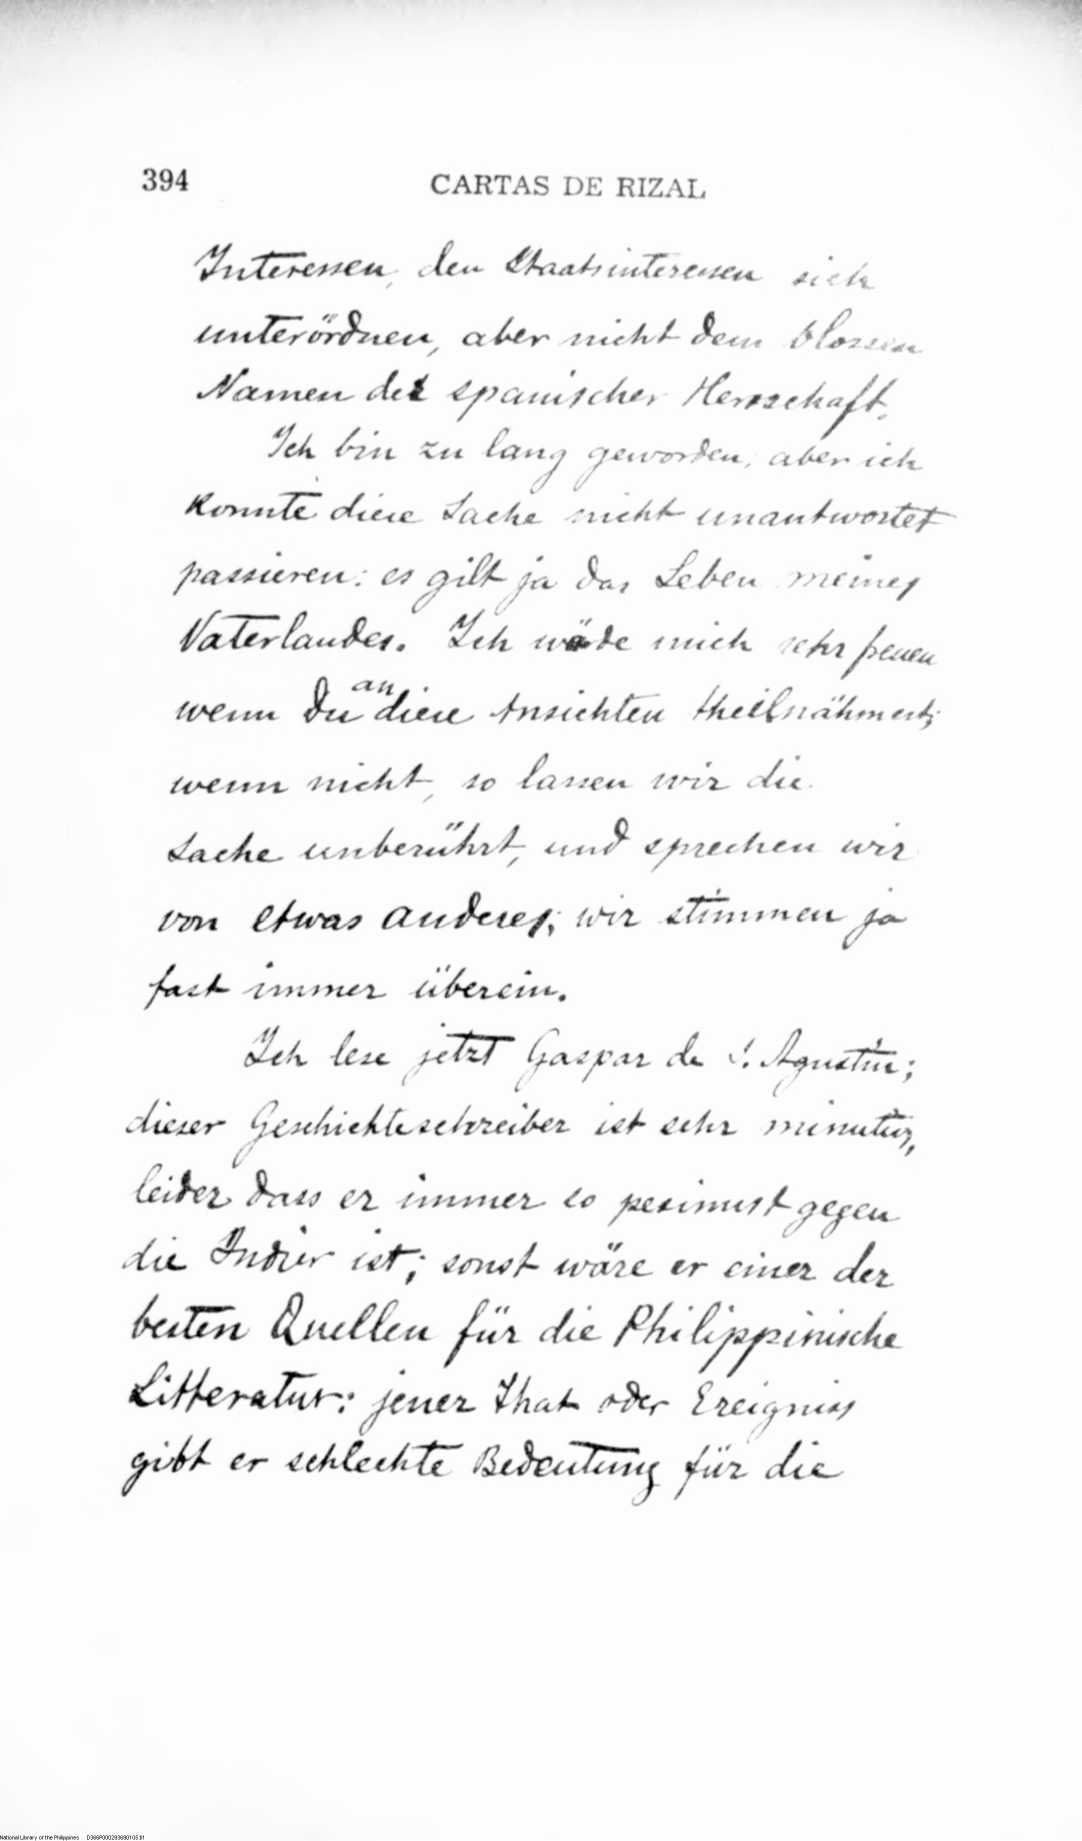 394 CARTAS DE RIZAL
Interessen, den Staatsinteressen sich
unterördnen, aber nicht dem blossen
Namen der spanischer Herrschaft.
Ich bin zu lang geworden, aber ich
konnte diese Sache nicht unantwortet
passieren: es gilt ja das Leben meines
Vaterlandes. Ich würde mich sehr freuen
wenn Du an diese Ansichten theilnähmest;
wenn nicht, so lassen wir die
Sache unberührt, und sprechen wir
von etwas anderes; wir stimmen ja
fast immer überein.
Ich lese jetzt Gaspar de S. Agustin;
dieser Geschichteschreiber ist sehr minutiös,
leider dass er immer so pesimist gegen
die Indier ist; sonst wäre er einer der
besten Quellen für die Philippinische
Litteratur: jener That oder Ereigniss
gibt er schlechte Bedeutung für die
National Library of the Philippines